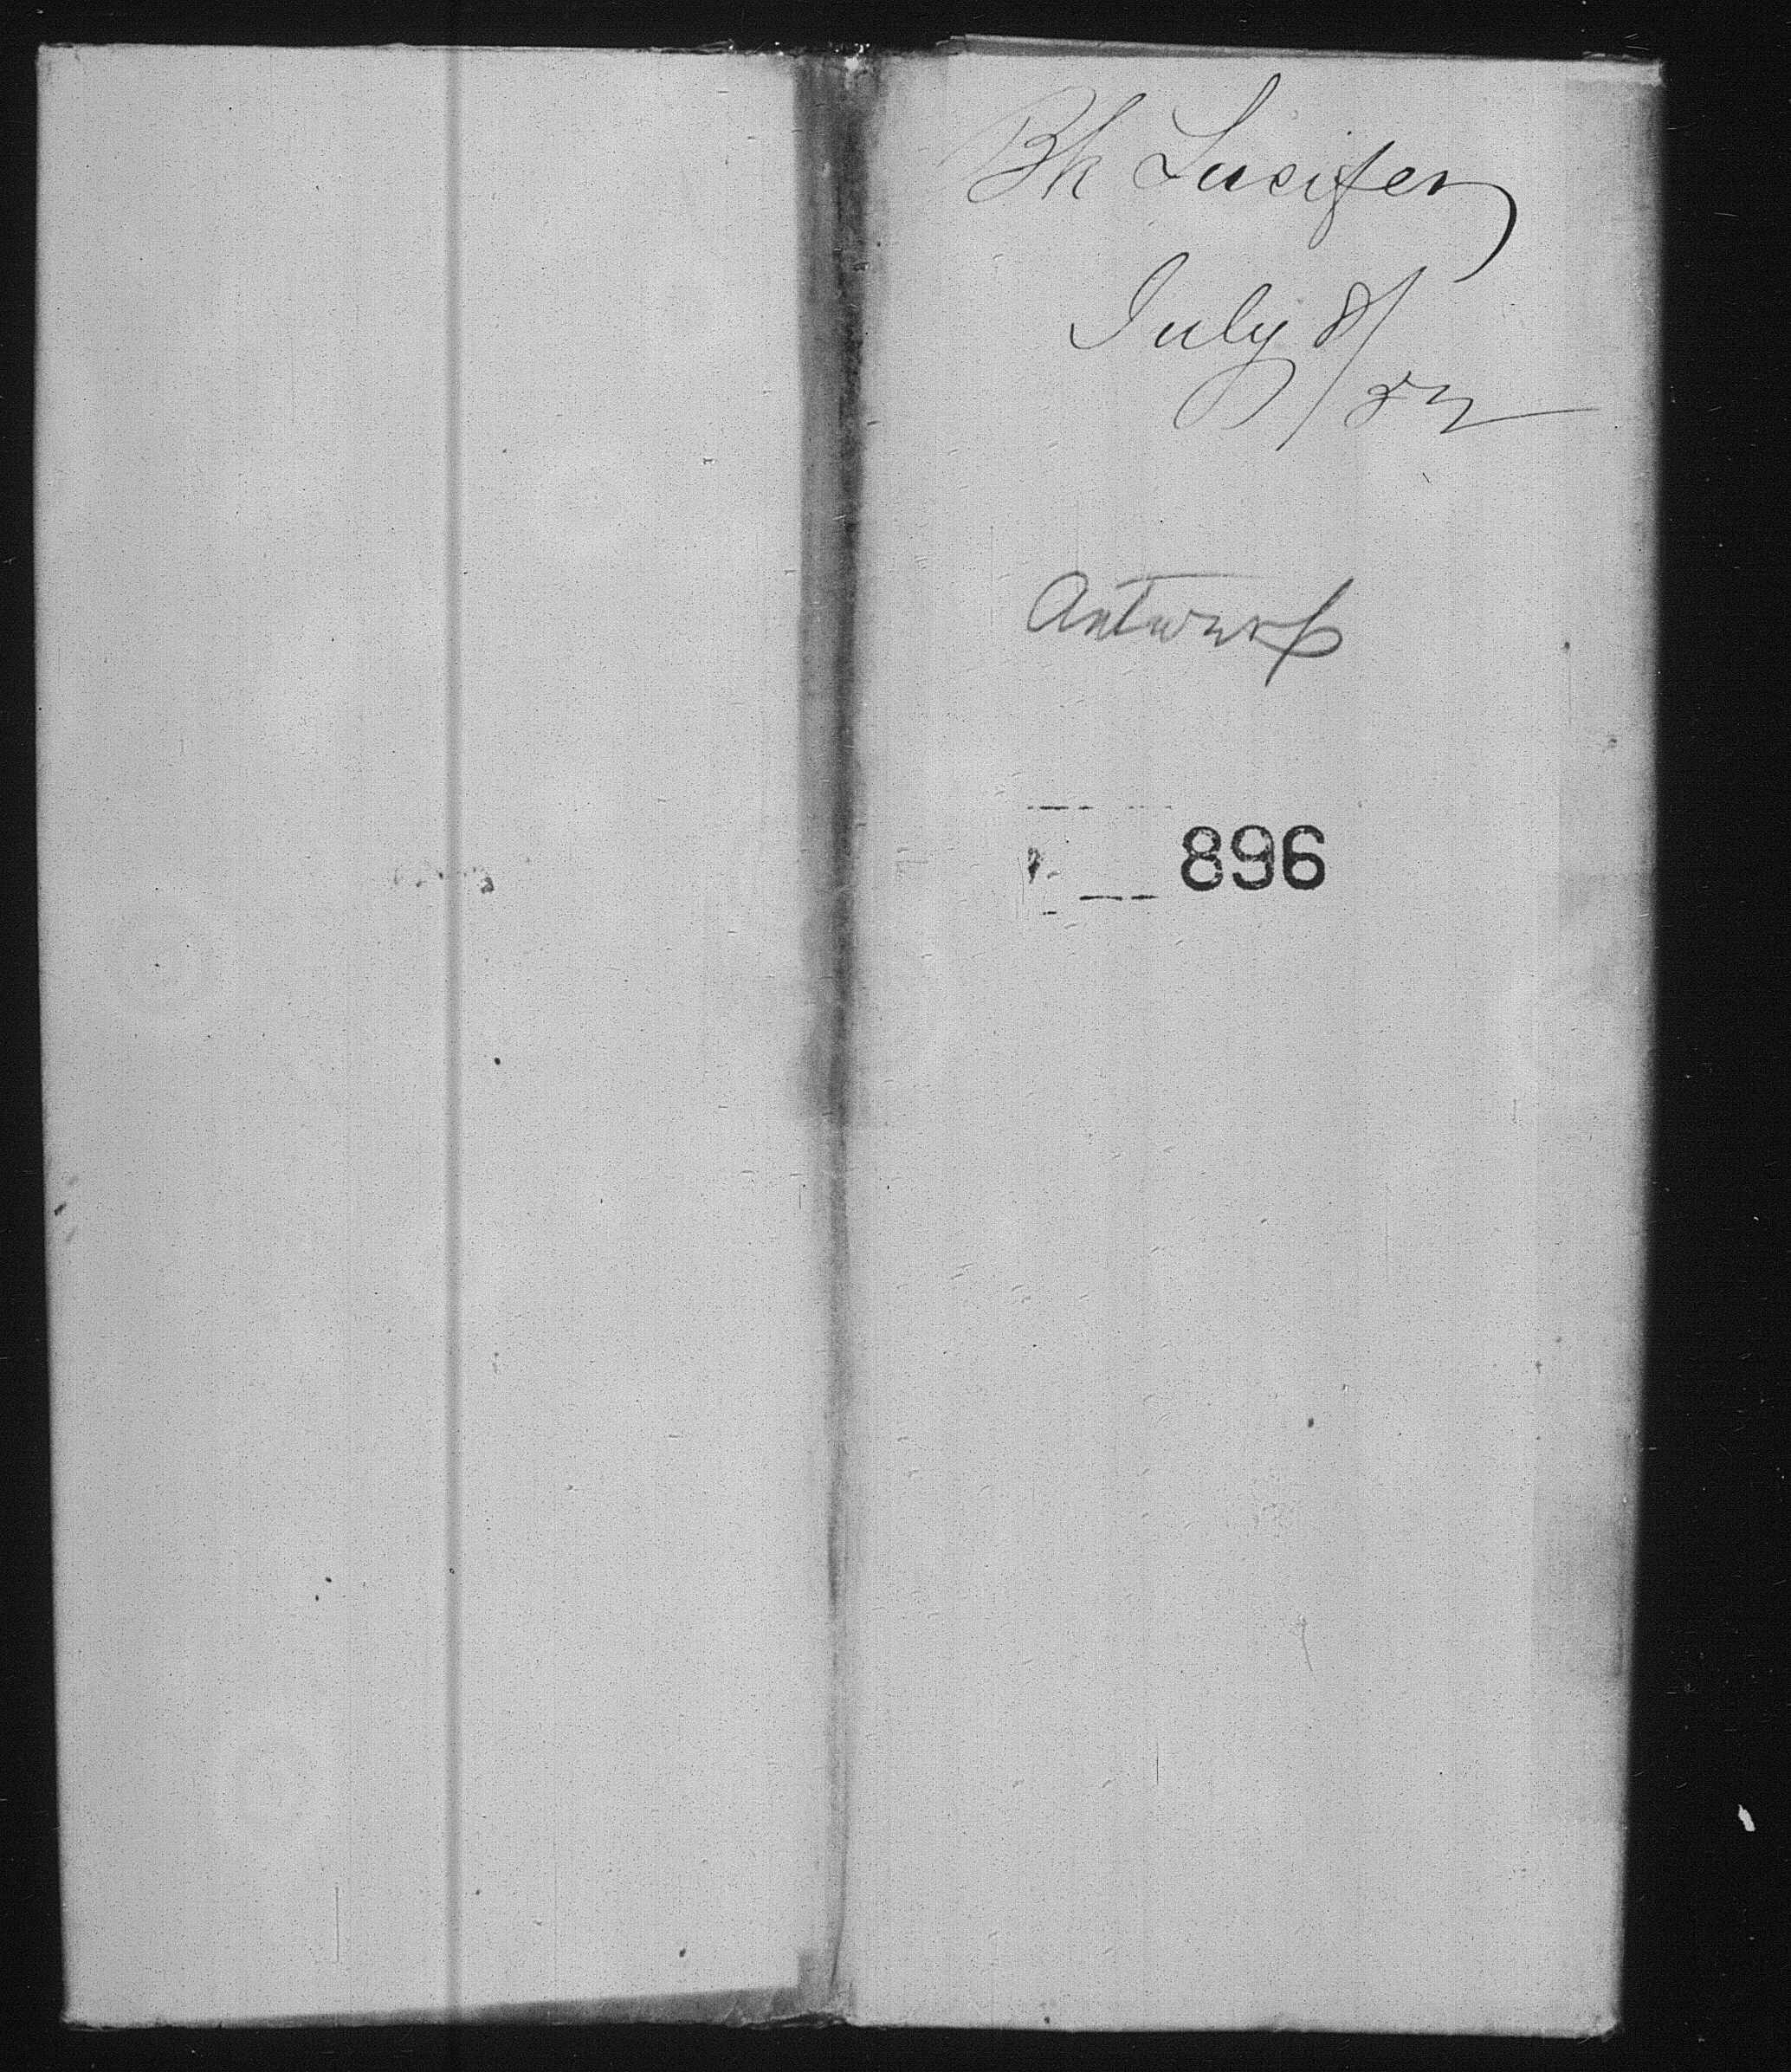 Bk Lucifer
July 8/52
Antwerp
896